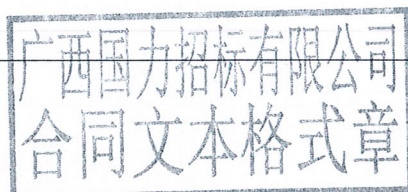 广西国力招标有限公司
合同文本格式章